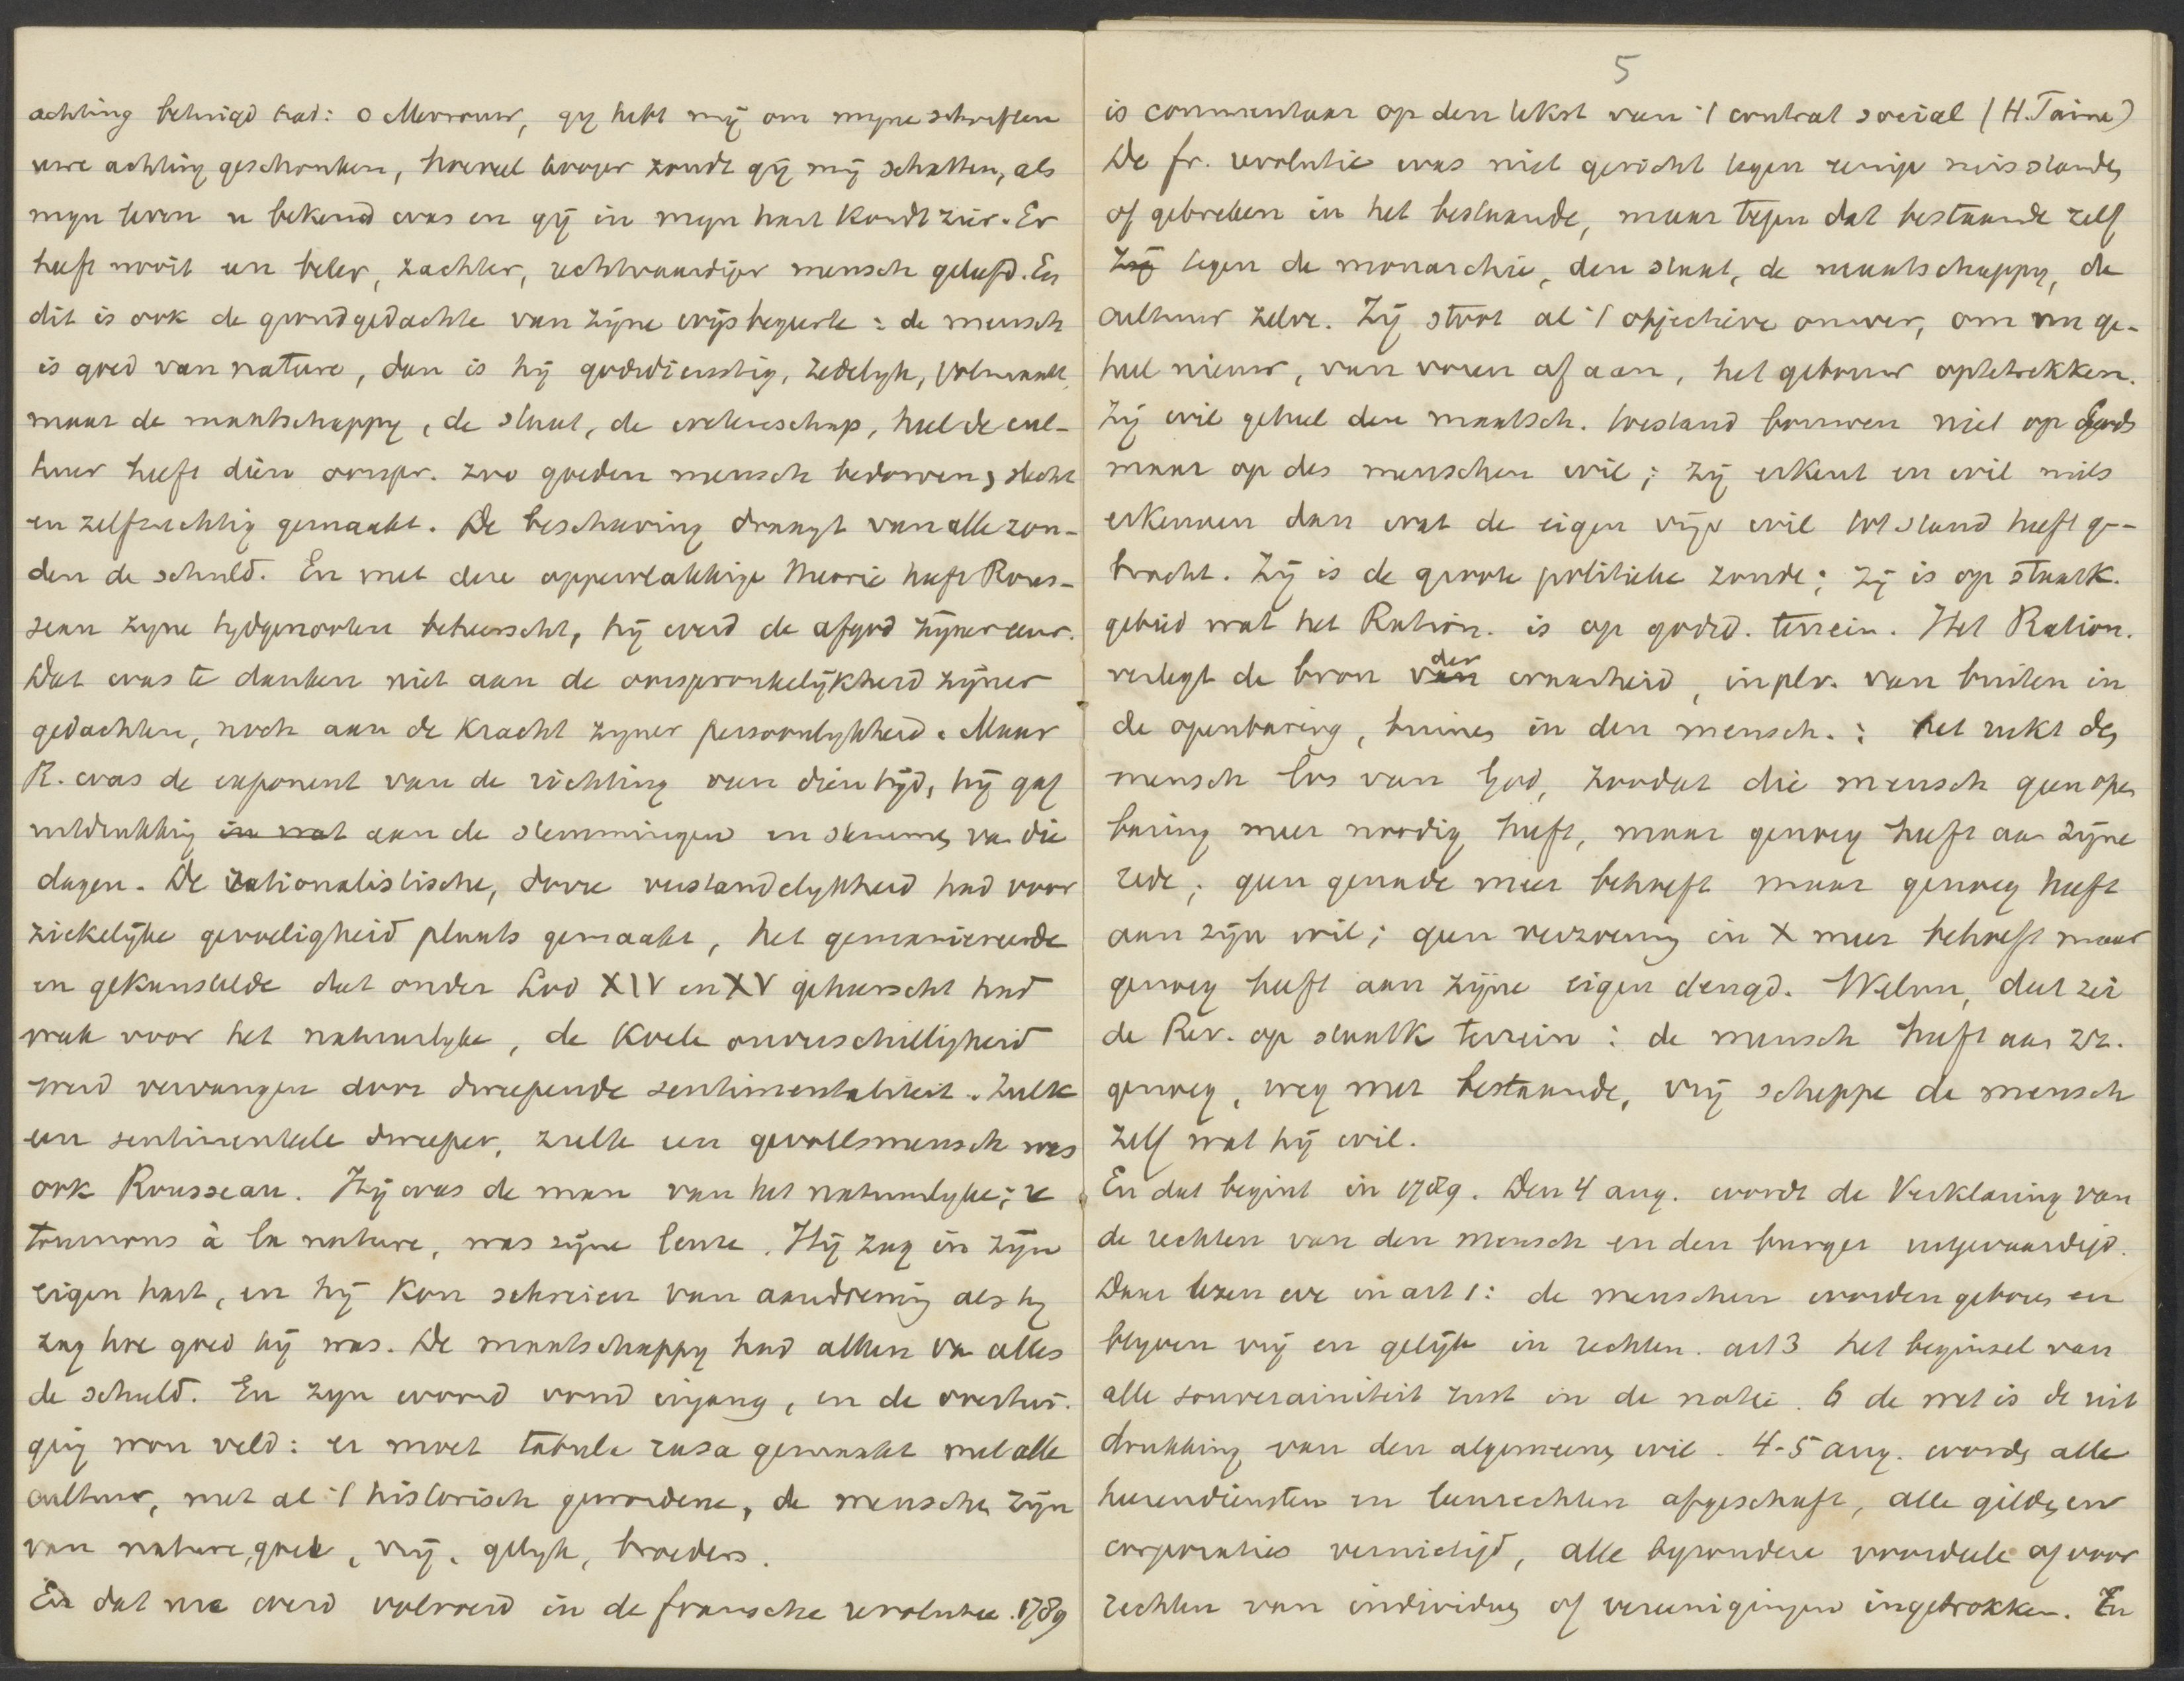 achting betuigd had: o Mevrouw, gy hebt mij om myne schriften
uwe achting geschonken, hoeveel hooger zoudt gij mij schatten, als
myn leven u bekend was en gij in myn hart kondt zien. Er
heeft nooit een beter, zachter, rechtvaardiger mensch geleefd. En
dit is ook de grondgedachte van zijne wijsbegeerte: de mensch
is goed van nature, dan is hij godsdienstig, zedelyk, volmaakt,
maar de maatschappy, de staat, de wetenschap, heel de cul-
tuur heeft dien oorspr. zoo goeden mensch bedorven, slecht
en zelfzuchtig gemaakt. De beschaving draagt van alle zon-
den de schuld. En met deze oppervlakkige theorie heeft Rous-
seau zyne tydgenooten beheerscht, hij werd de afgod zijner eeuw.
Dat was te danken niet aan de oorspronkelijkheid zijner
gedachten, noch aan de kracht zyner persoonlykheid. Maar
R. was de exponent van de richting van dien tijd, hij gaf
uitdrukking in wat aan de stemmingen en stroomen van die
dagen. De rationalistische, dorre verstandelykheid had voor
ziekelijke gevoeligheid plaats gemaakt, het gemaniereerde
en gekunstelde dat onder Lod XIV en XV geheerscht had
week voor het natuurlyke, de koele onverschilligheid
werd vervangen door dweepende sentimentaliteit. Zulk
een sentimenteele dweeper, zulk een gevoelsmensch was
ook Rousseau. Hij was de man van het natuurlyke; re
tournons à la nature, was zijne leuze. Hij zag in zijn
eigen hart, en hij kon schreien van aandoening als hy
zag hoe goed hij was. De maatschappy had alleen van alles
de schuld. En zyn woord vond ingang, en de overtui-
ging won veld: er moet tabula rasa gemaakt met alle
cultuur, met al 't historisch gewordene, de menschen zijn
van nature, goed, vrij, gelyk, broeders.
En dat nu werd voltooid in de fransche revolutie. 1789
5
is commentaar op den tekst van 't contrat social (H. Taine)
De fr. revolutie was niet gericht tegen eenige misstanden
of gebreken in het bestaande, maar tegen dat bestaande zelf
Zij tegen de monarchie, den staat, de maatschappy, de
cultuur zelve. Zij stoot al 't objectieve omver, om nu ge-
heel nieuw, van voren af aan, het gebouw optetrekken.
Zij wil geheel den maatsch. toestand bouwen niet op Gods
maar op des menschen wil; zij erkent en wil niets
erkennen dan wat de eigen vrije wil tot stand heeft ge-
bracht. Zij is de groote politieke zonde; zij is op staatk.
gebied wat het Ration. is op godsd. terrein. Het Ration.
verlegt de bron van der waarheid, in pl. v. van buiten in
de openbaring, binnen in den mensch.: het rukt den
mensch los van God, zoodat die mensch geen open
baring meer noodig heeft, maar genoeg heeft aan zijne
rede; geen genade meer behoeft maar genoeg heeft
aan zijn wil; geen verzoening in X meer behoeft maar
genoeg heeft aan zijne eigen deugd. Welnu, dat zei
de Rev. op staatk terrein: de mensch heeft aan zz.
genoeg, weg met bestaande, vrij scheppe de mensch
zelf wat hij wil.
En dat begint in 1789. Den 4 aug. wordt de Verklaring van
de rechten van den mensch en den burger uitgevaardigd.
Daar lezen we in art 1: de menschen worden geboren en
blyven vrij en gelijk in rechten. art 3 het beginsel van
alle souverainiteit rust in de natie. 6 de wet is de uit
drukking van den algemeenen wil. 4-5 aug. worden alle
heerendiensten en leenrechten afgeschaft, alle gilden en
corporaties vernietigd, alle byzondere voordeelen of voor
rechten van individuen of vereenigingen ingetrokken. En